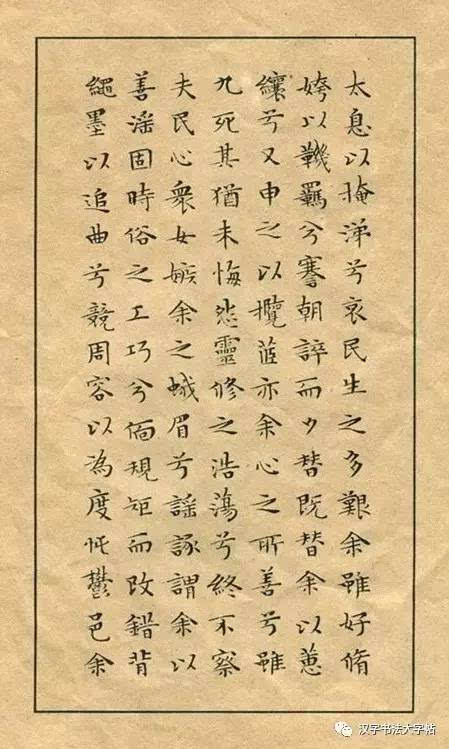 太息以掩涕兮哀民生之多艱余雖好脩
姱以鞿羈兮謇朝誶而夕替既替余以蕙
纕兮又申之以攬茝亦余心之所善兮雖
九死其猶未悔怨靈修之浩蕩兮終不察
夫民心衆女嫉余之蛾眉兮謠諑謂余以
善淫固時俗之工巧兮偭規矩而改錯背
繩墨以追曲兮競周容以為度忳鬱邑余
汉字书法大字帖